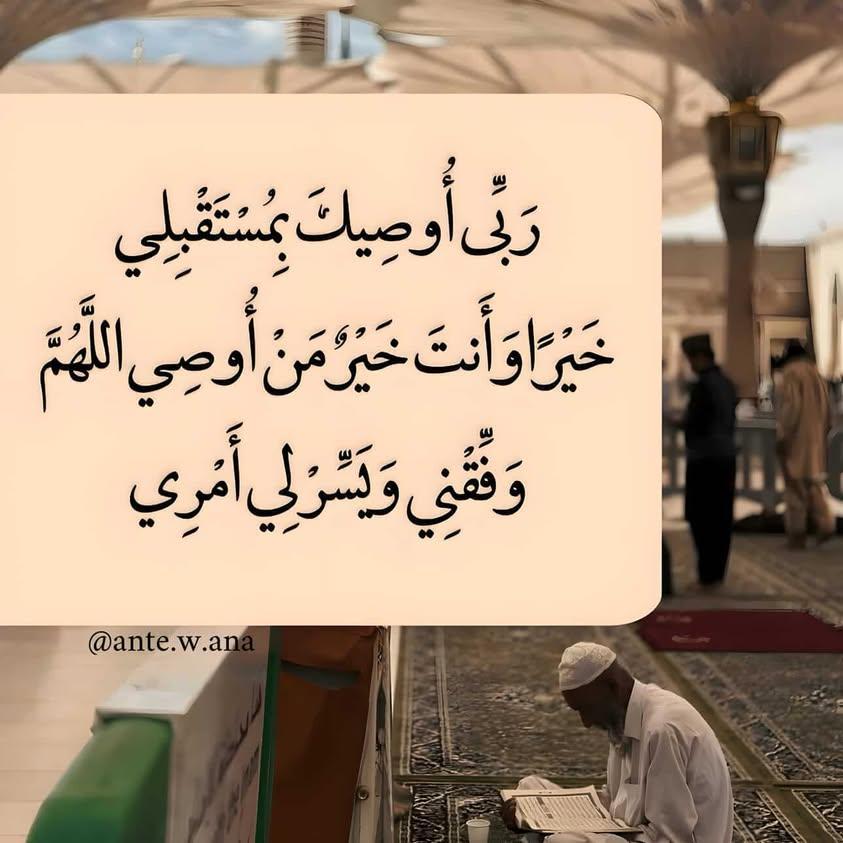 رَبِّى أُوصِيكَ بِمُسْتَقْبِلِي
خَيْرًا وَأَنتَ خَيْرٌ مَنْ أُوصِي اللَّهُمَّ
وَفِّقْنِي وَيَسِّرْ لِي أَمْرِي
@ante.w.ana